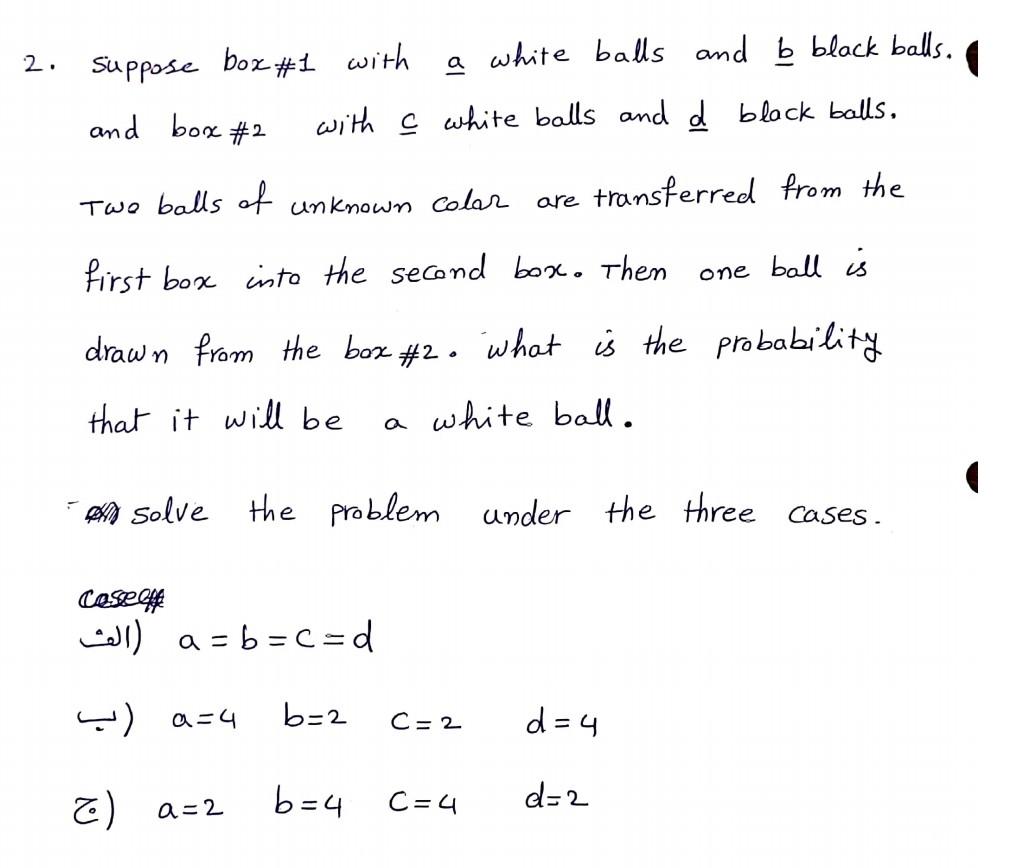 2. suppose box #1 with a white balls and b black balls.
and box #2 with c white balls and d black balls.
Two balls of unknown color are transferred from the
first box into the second box. Then one ball is
drawn from the box #2. what is the probability
that it will be a white ball.
solve the problem under the three cases.
case
الف) a = b = c = d
ب) a=4 b=2 c=2 d=4
ج) a=2 b=4 c=4 d=2